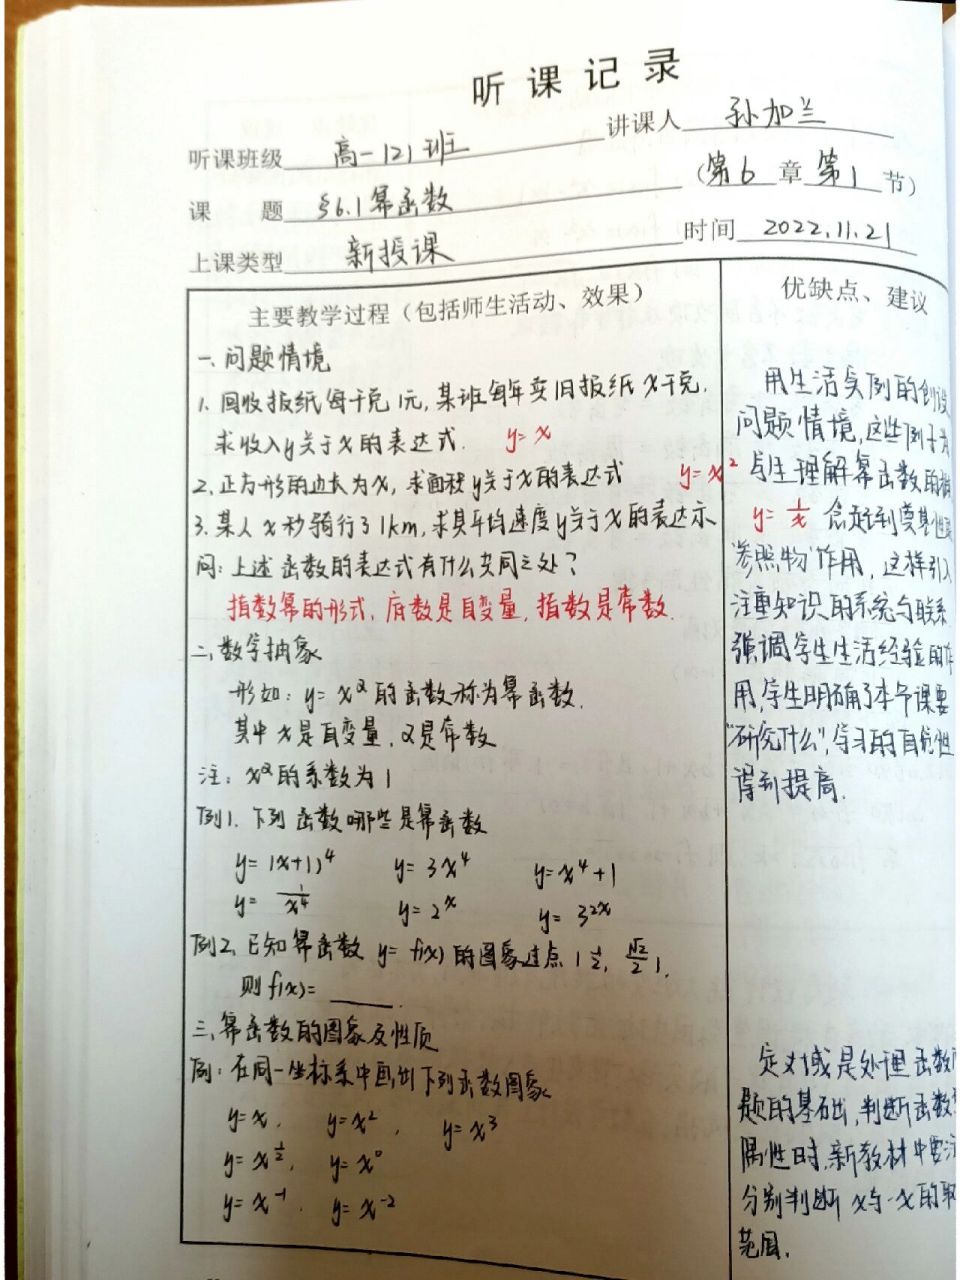 听课记录
听课班级 高一121班 讲课人 孙加兰
课 题 §6.1幂函数 (第6章第1节)
上课类型 新授课 时间 2022.11.21
主要教学过程(包括师生活动、效果)
一、问题情境
1. 回收报纸每千克1元,某班每年卖旧报纸x千克.
求收入y关于x的表达式. y=x
2. 正方形的边长为x,求面积y关于x的表达式 y=x²
3. 某人x秒骑行了1km,求其平均速度y关于x的表达示 y=1/x
问:上述函数的表达式有什么共同之处?
指数幂的形式,底数是自变量,指数是常数.
二、数学抽象
形如:y=x^α的函数称为幂函数.
其中x是自变量,α是常数
注:x^α的系数为1
例1. 下列函数哪些是幂函数
y=(x+1)⁴ y=3x⁴ y=x⁴+1
y=1/x⁴ y=2^x y=3^2x
例2. 已知幂函数y=f(x)的图象过点(1/2, √2/2),
则f(x)=____.
三、幂函数的图象及性质
例:在同一坐标系中画出下列函数图象
y=x, y=x², y=x³
y=x^1/2, y=x⁰
y=x⁻¹, y=x⁻²
优缺点、建议
用生活实例的创设
问题情境,这些例子为
学生理解幂函数的
念起到
"参照物"作用,这样引入
注重知识的系统与联系
强调学生生活经验的作
用,学生明确了本节课要
"研究什么",学习的自觉性
得到提高.
定义域是处理函数
题的基础,判断函数
属性时,新教材中要
分别判断x与-x的取
范围.